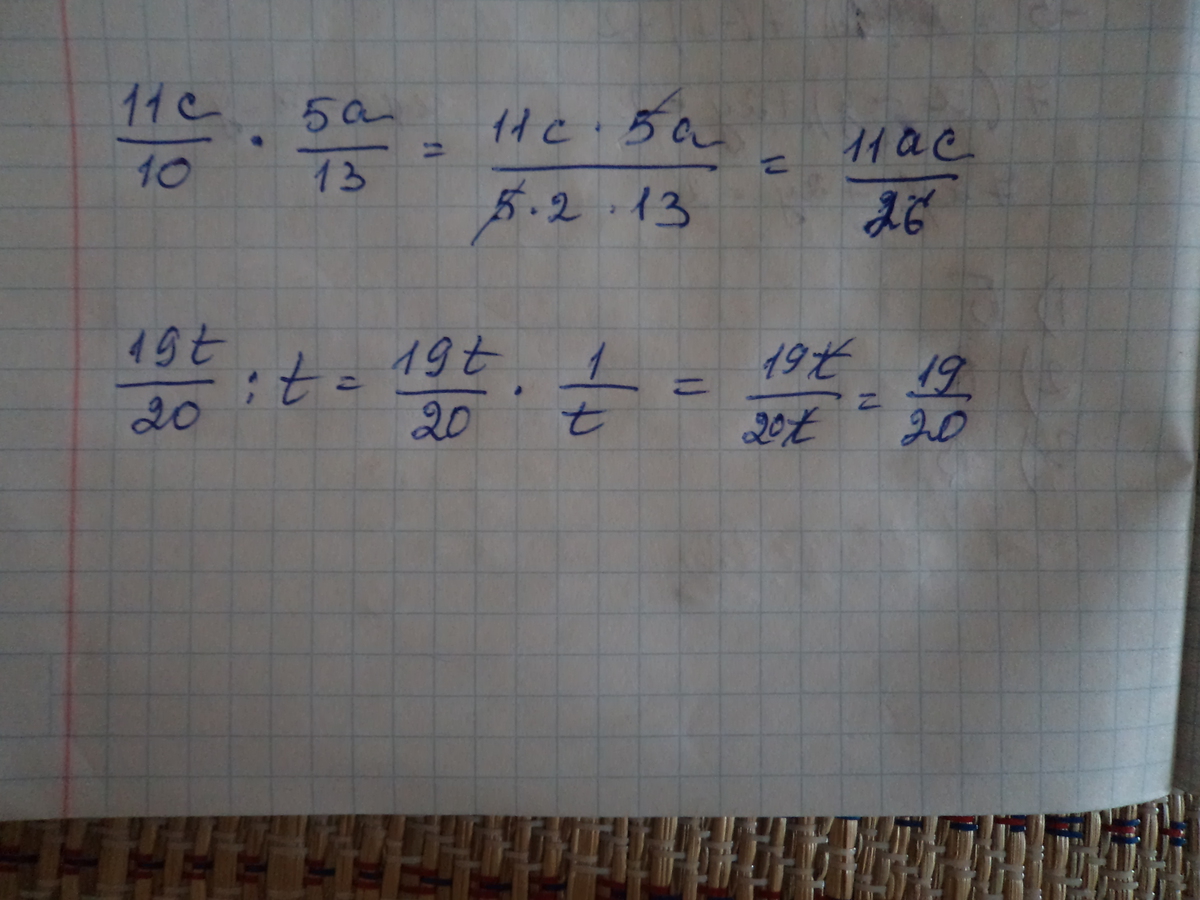 11c/10 · 5a/13 = 11c · 5a / 5 · 2 · 13 = 11ac/26
19t/20 : t = 19t/20 · 1/t = 19t/20t = 19/20